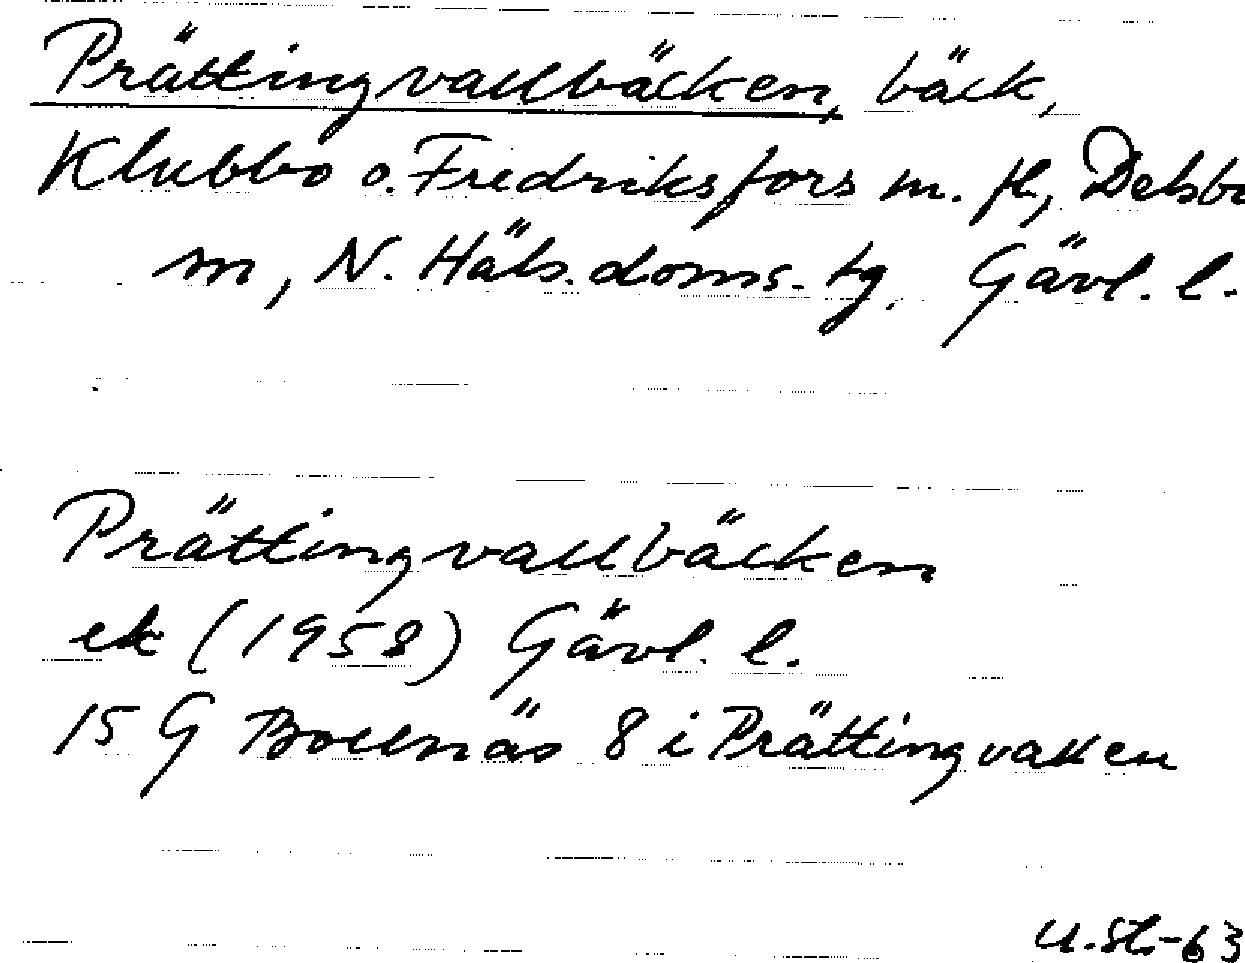 Prättingvallbäcken, bäck,
Klubbo o. Fredriksfors m. fl., Delsbo
m, N. Häls. doms. tg, Gävl. l.
Prättingvallbäcken
ek (1958) Gävl. l.
15 G Bollnäs 8 i Prättingvallen
U. St.-63